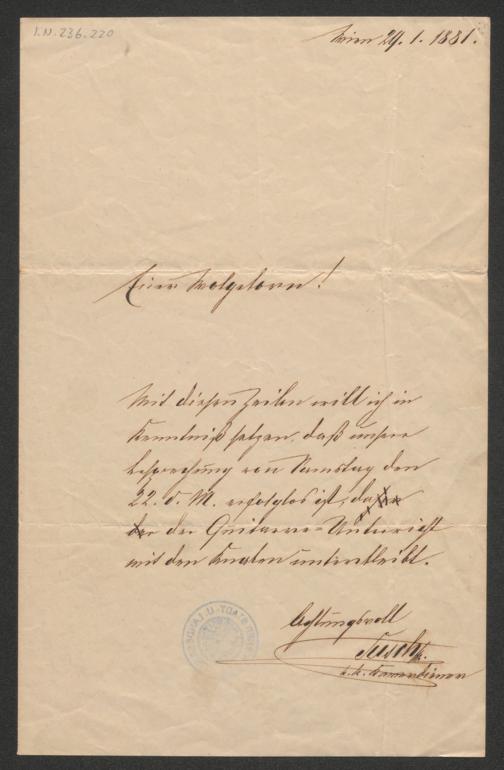 I.N. 236.220
Wien 29. 1. 1881.
Euer Wolgeborn!
Mit diesen Zeilen will ich in
Kenntniß setzen, daß unsere
Besprechung von Samstag den
22. d. M. erfolglos ist, da
der der Guitarre-Unterricht
mit den Knaben unterbleibt.
Achtungsvoll
k. k. Kammerdiener